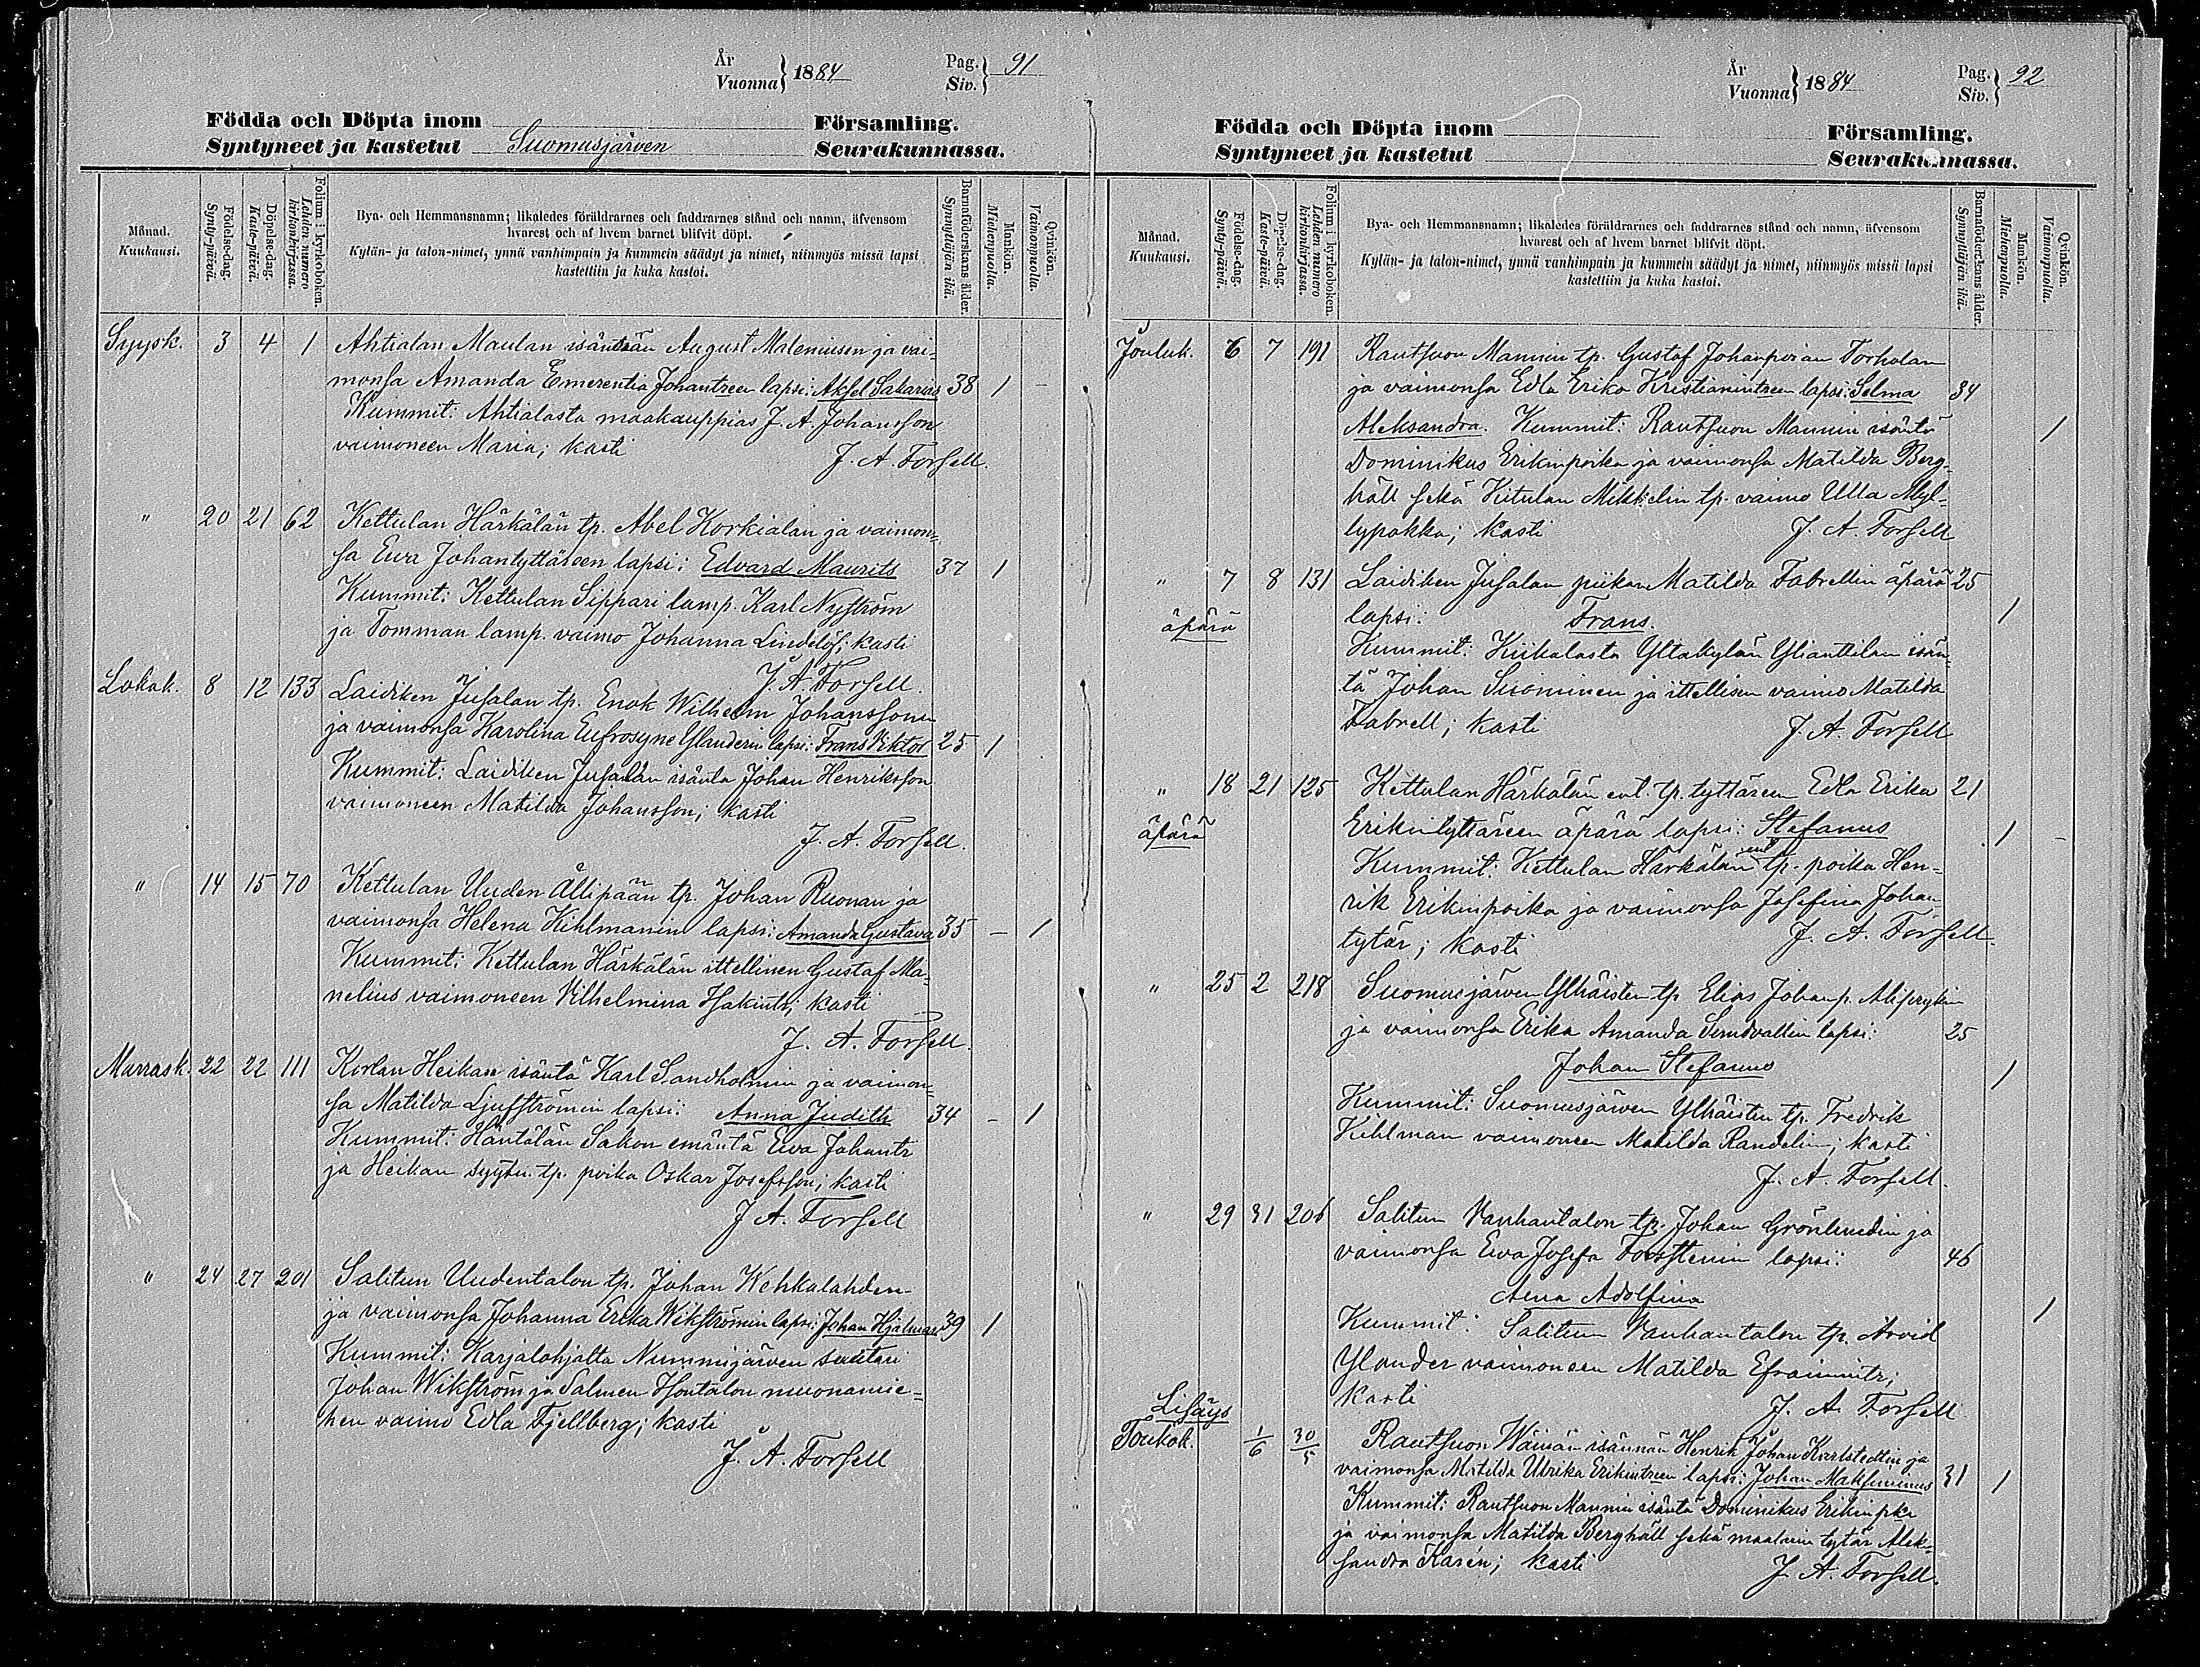 År
Vuonna } 1884
Pag.
Siv. } 91
Födda och Döpta inom Församling.
Syntyneet ja kastetut Suomusjärven Seurakunnassa.
Månad.
Kuukausi.
Födelse-dag.
Synty-päivä.
Döpelse-dag.
Kaste-päivä.
Folium i kyrkoboken.
Lehden numero kirkonkirjassa.
Bya- och Hemmansnamn; likaledes föräldrarnes och faddrarnes stånd och namn, äfvensom
hvarest och af hvem barnet blifvit döpt.
Kylän- ja talon-nimet, ynnä vanhimpain ja kummein säädyt ja nimet, niinmyös missä lapsi
kastettiin ja kuka kastoi.
Barnaföderskans ålder.
Synnyttäjän ikä.
Mankön.
Miehenpuolia.
Qvinkön.
Vaimonpuolia.
Syysk. 3 4 1 Ahtialan Maulan isännän August Maleniusen ja vai-
monsa Amanda Emerentia Johantreen lapsi: Aksel Sakarias 38 1 -
Kummit: Ahtialasta maakauppias J. A. Johansson
vaimoneen Maria; kasti
J. A. Forsell.
" 20 21 62 Kettulan Härkälän tp. Abel Korkialan ja vaimon-
sa Ewa Johantyttäreen lapsi: Edvard Maurits 37 1
Kummit: Kettulan Sippari lamp. Karl Nyström
ja Tomman lamp. vaimo Johanna Lindelöf; kasti
J. A. Forsell.
Lokak. 8 12 133 Laidiken Jusalan tp. Enok Wilhelm Johanssonin
ja vaimonsa Karolina Eufrosyne Ylanderin lapsi: Frans Viktor 25 1
Kummit: Laidiken Jusalan isäntä Johan Henriksson
vaimoneen Matilda Johansson; kasti
J. A. Forsell.
" 14 15 70 Kettulan Uuden Ällipään tp. Johan Ruonan ja
vaimonsa Helena Kihlmanin lapsi: Amanda Gustava 35 - 1
Kummit: Kettulan Härkälän ittellinen Gustaf Ma-
nelius vaimoneen Vilhelmina Isakintr; kasti
J. A. Forsell.
Marrask. 22 22 111 Korlan Heikan isäntä Karl Sandholmin ja vaimon-
sa Matilda Ljufströmin lapsi: Anna Judith 34 - 1
Kummit: Häntälän Sakon emäntä Ewa Johantr
ja Heikan syytn. tp. poika Oskar Josefsson; kasti
J. A. Forsell
" 24 27 201 Salitun Uudentalon tp. Johan Kehkalahden
ja vaimonsa Johanna Erika Wikströmin lapsi: Johan Hjalmar 39 1
Kummit: Karjalohjalta Nummijärven
Johan Wikström ja Salmen Isontalon muonamie-
hen vaimo Edla Fjellberg; kasti
J. A. Forsell
År
Vuonna } 1884
Pag.
Siv. } 92
Födda och Döpta inom Församling.
Syntyneet ja kastetut Seurakunnassa.
Månad.
Kuukausi.
Födelse-dag.
Synty-päivä.
Döpelse-dag.
Kaste-päivä.
Folium i kyrkoboken.
Lehden numero kirkonkirjassa.
Bya- och Hemmansnamn; likaledes föräldrarnes och faddrarnes stånd och namn, äfvensom
hvarest och af hvem barnet blifvit döpt.
Kylän- ja talon-nimet, ynnä vanhimpain ja kummein säädyt ja nimet, niinmyös missä lapsi
kastettiin ja kuka kastoi.
Barnaföderskans ålder.
Synnyttäjän ikä.
Mankön.
Miehenpuolia.
Qvinkön.
Vaimonpuolia.
Jouluk. 6 7 191 Rautsuon Mannin tp. Gustaf Johanpoian Torholan
ja vaimonsa Edla Erika Kristianintreen lapsi: Selma 34
Aleksandra. Kummit: Rautsuon Mannin isäntä 1
Dominikus Erikinpoika ja vaimonsa Matilda Berg-
häll sekä Kitulan Mikkelin tp. vaimo Ulla Myl-
lypakka; kasti J. A. Forsell
" 7 8 131 Laidiken Jusalan piikan Matilda Fabrellin äpärä 25
äpärä lapsi: Frans. 1
Kummit: Kiikalasta Yltäkylän Yliantilan isän-
tä Johan Suominen ja ittellisen vaimo Matilda
Fabrell; kasti J. A. Forsell
" 18 21 125 Kettulan Härkälän ent. tp. tyttären Edla Erika 21
äpärä Erikintyttäreen äpärä lapsi: Stefanus 1 -
Kummit: Kettulan Härkälän ent. tp. poika Hen-
rik Erikinpoika ja vaimonsa Josefina Johan-
tytär; kasti J. A. Forsell.
" 25 2 218 Suomusjärven Ylhäisten tp. Elias Johanp.
ja vaimonsa Erika Amanda Sundvallin lapsi: 25
Johan Stefanus 1
Kummit: Suomusjärven Ylhäisten tp. Fredrik
Kihlman vaimoneen Matilda Randelin; kasti
J. A. Forsell.
" 29 31 206 Salitun Vanhantalon tp. Johan Grönlundin ja
vaimonsa Ewa Josefa Forsstenin lapsi: 46
Alma Adolfina
Kummit: Salitun Vanhantalon tp. Arvid 1
Ylander vaimoneen Matilda Efraimintr;
kasti J. A. Forsell
Lisäys
Toukok. 1/6 30/5 Rautsuon Wäinän isännän Henrik Johan Karlstedtin ja
vaimonsa Matilda Ulrika Erikintreen lapsi: Johan Maksiminus 31 1
Kummit: Rautsuon Mannin isäntä Dominikus Erikinpka
ja vaimonsa Matilda Berghäll sekä maalarin tytär Alek-
sandra Karén; kasti J. A. Forsell.